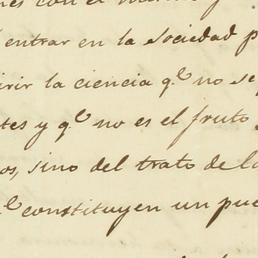 con el
entrar en la sociedad p
irir la ciencia q.e no se
tes y q.e no es el fruto
os, sino del trato de lo
q.e constituyen un pue